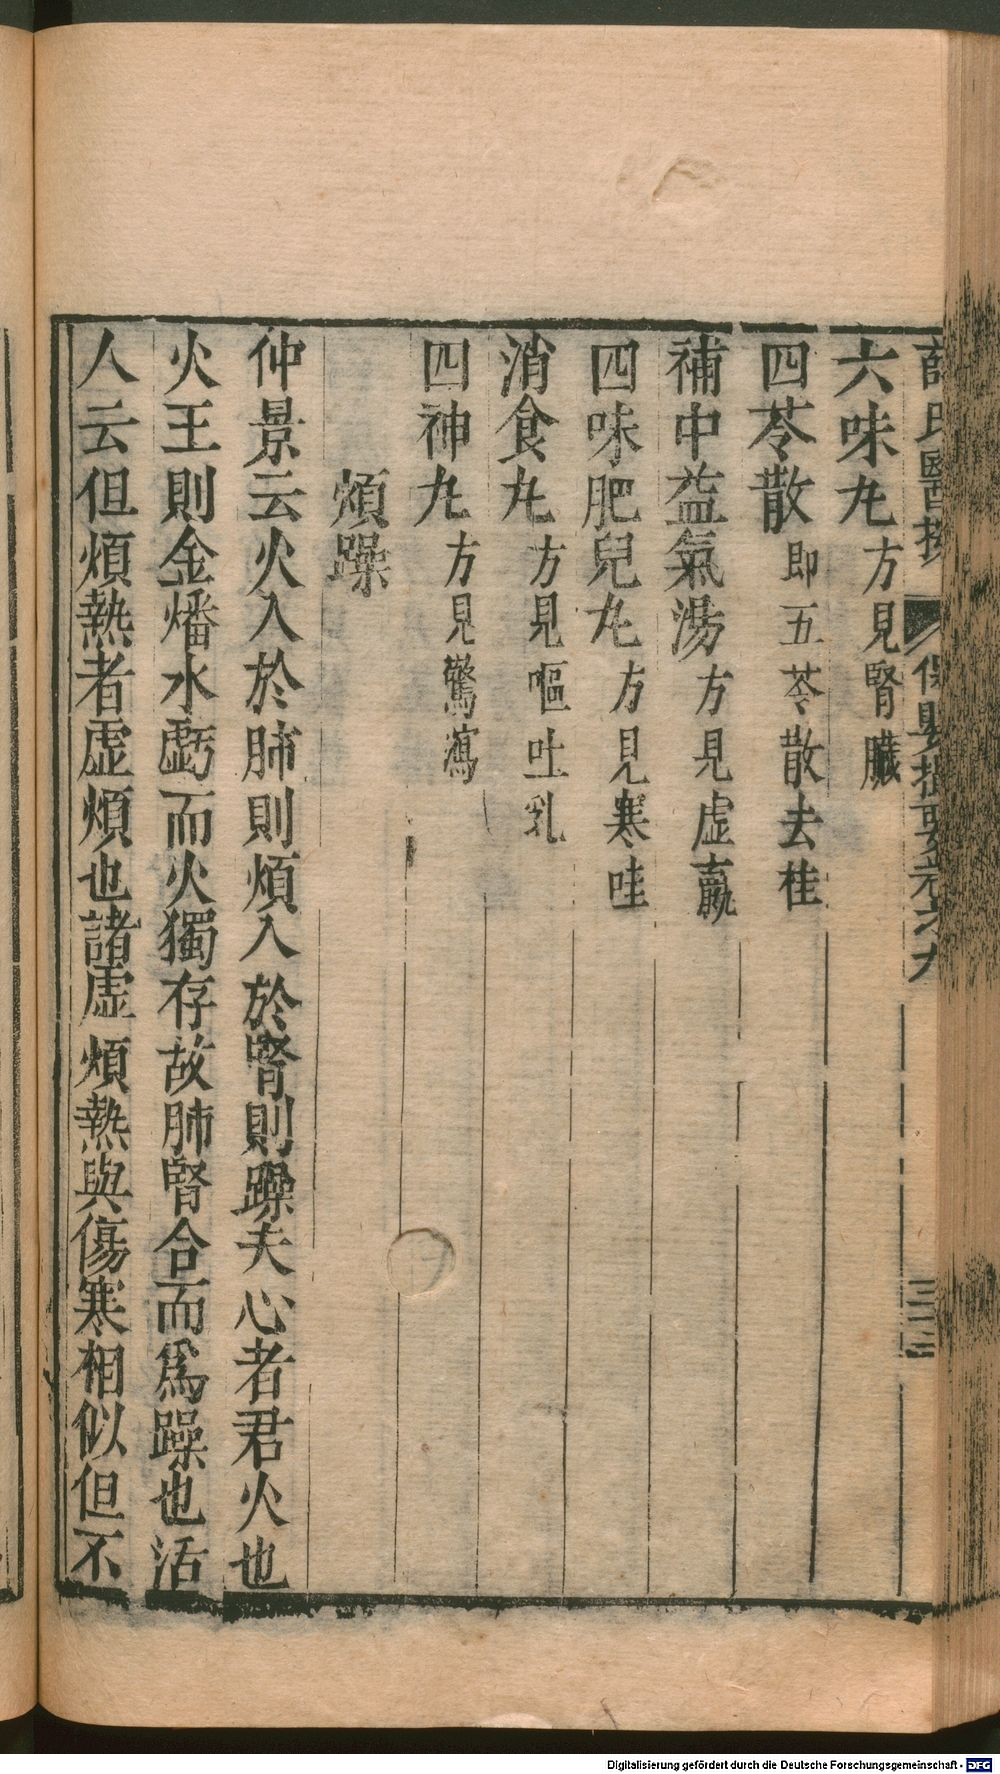 薛氏醫按 保嬰撮要卷之九 三十三
六味丸方見腎臟
四苓散即五苓散去桂
補中益氣湯方見虛羸
四味肥兒丸方見寒吐哇
消食丸方見嘔吐乳
四神丸方見驚瀉
煩躁
仲景云火入於肺則煩入於腎則躁夫心者君火也
火王則金燔水虧而火獨存故肺腎合而為躁也活
人云但煩熱者虛煩也諸虛煩熱與傷寒相似但不
Digitalisierung gefördert durch die Deutsche Forschungsgemeinschaft - DFG